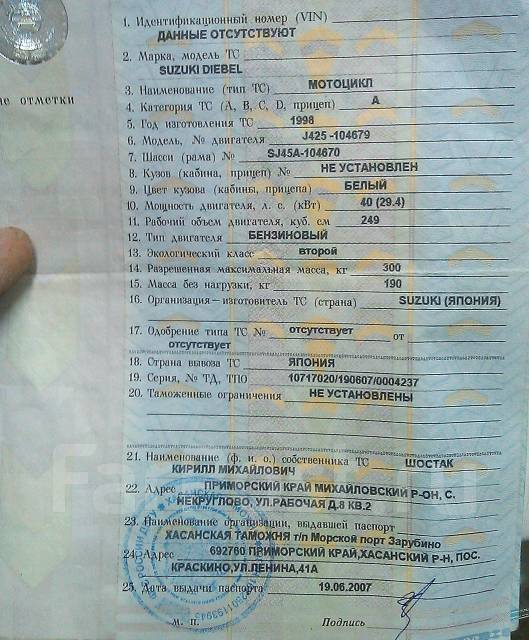 1. Идентификационный номер (VIN)
ДАННЫЕ ОТСУТСТВУЮТ
2. Марка, модель ТС
SUZUKI DIEBEL
3. Наименование (тип ТС) МОТОЦИКЛ
ые отметки
4. Категория ТС (A, B, C, D, прицеп) A
5. Год изготовления ТС 1998
6. Модель, № двигателя J425 -104679
7. Шасси (рама) № SJ45A-104670
8. Кузов (кабина, прицеп) № НЕ УСТАНОВЛЕН
9. Цвет кузова (кабины, прицепа) БЕЛЫЙ
10. Мощность двигателя, л. с. (кВт) 40 (29.4)
11. Рабочий объем двигателя, куб. см 249
12. Тип двигателя БЕНЗИНОВЫЙ
13. Экологический класс второй
14. Разрешенная максимальная масса, кг 300
15. Масса без нагрузки, кг 190
16. Организация—изготовитель ТС (страна) SUZUKI (ЯПОНИЯ)
17. Одобрение типа ТС № отсутствует от
отсутствует
18. Страна вывоза ТС ЯПОНИЯ
19. Серия, № ТД, ТПО 10717020/190607/0004237
20. Таможенные ограничения НЕ УСТАНОВЛЕНЫ
21. Наименование (ф. и. о.) собственника ТС ШОСТАК
КИРИЛЛ МИХАЙЛОВИЧ
22. Адрес ПРИМОРСКИЙ КРАЙ МИХАЙЛОВСКИЙ Р-ОН, С.
НЕКРУГЛОВО, УЛ.РАБОЧАЯ Д.8 КВ.2
23. Наименование организации, выдавшей паспорт
ХАСАНСКАЯ ТАМОЖНЯ т/п Морской порт Зарубино
24. Адрес 692760 ПРИМОРСКИЙ КРАЙ,ХАСАНСКИЙ Р-Н, ПОС.
КРАСКИНО,УЛ.ЛЕНИНА,41А
25. Дата выдачи паспорта 19.06.2007
М. П. Подпись